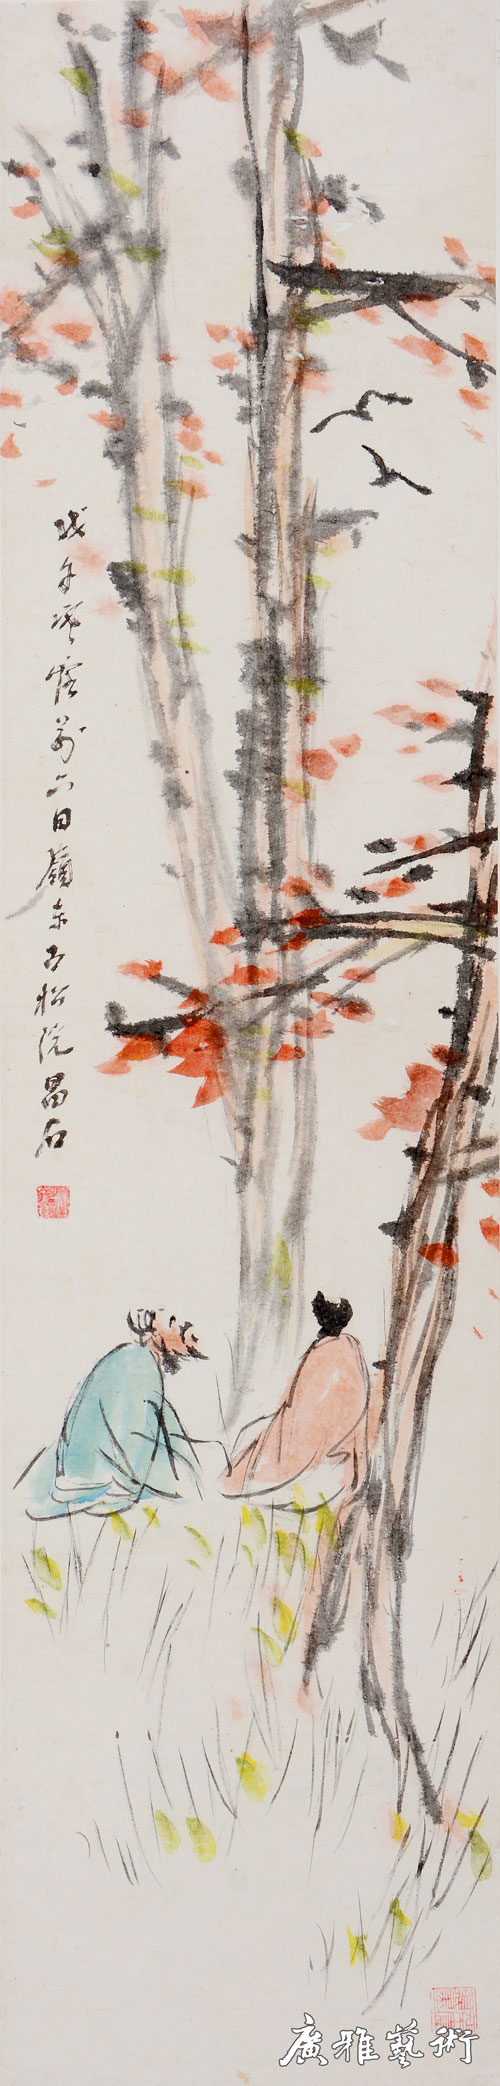 戊午寒露前六日嶺東古松院昌石
廣雅藝術